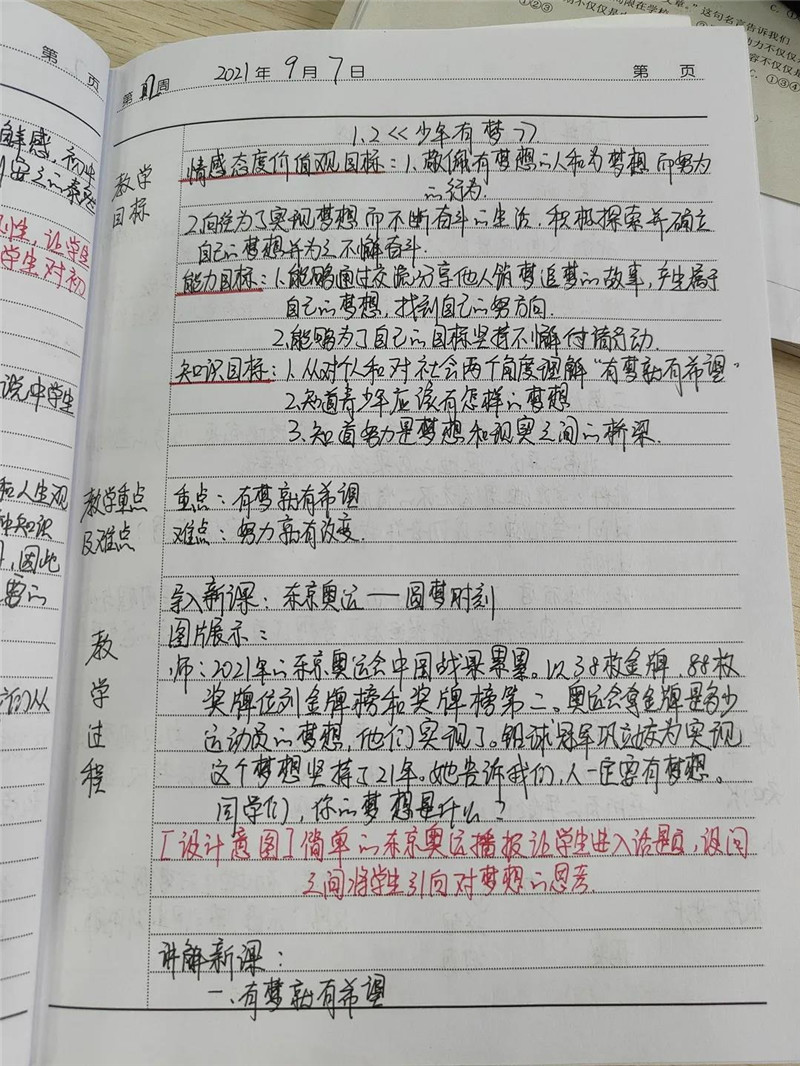 文章。"这句名言告诉我们
①②③
C. ①③④
第 页
鲜感,初中
学生对初
说中学生
和人生观
种知识
因此
第 周 2021年9月7日 第 页
1.2《少年有梦》
教学目标
情感态度价值观目标:1.敬佩有梦想的人和为梦想而努力
的行为.
2.向往为了实现梦想而不断奋斗的生活,积极探索并确立
自己的梦想并为之不懈奋斗.
能力目标:1.能够通过交流分享他人销梦追梦的故事,产生属于
自己的梦想,找到自己的努方向.
2.能够为了自己的目标坚持不懈付诸行动.
知识目标:1.从对个人和对社会两个角度理解"有梦就有希望"
2.知道青少年应该有怎样的梦想
3.知道努力是梦想和现实之间的桥梁.
教学重点及难点
重点:有梦就有希望
难点:努力就有改变.
教学过程
导入新课:东京奥运——圆梦时刻
图片展示:
师:2021年的东京奥运会中国战果累累。以38枚金牌、88枚
奖牌位列金牌榜和奖牌榜第二。奥运会夺金牌是多少
运动员的梦想,他们实现了。铅球冠军巩立姣为实现
这个梦想坚持了21年。她告诉我们,人一定要有梦想。
同学们,你的梦想是什么?
[设计意图]简单的东京奥运播报让学生进入话题,设问
之间将学生引向对梦想的思考.
讲解新课:
一、有梦就有希望